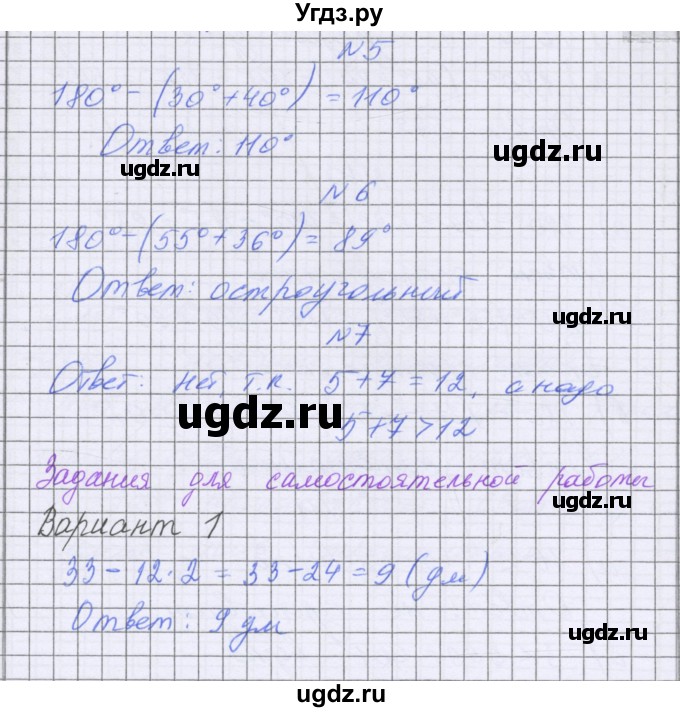 Угдз.ру
№5
180° - (30° + 40°) = 110°
Ответ: 110°
ugdz.ru
ugdz.ru
№6
180° - (55° + 36°) = 89°
Ответ: остроугольный
ugdz.ru
№7
Ответ: нет, т.к. 5 + 7 = 12, а надо
ugdz.ru
5 + 7 > 12
Задания для самостоятельной работы
Вариант 1
33 - 12·2 = 33 - 24 = 9 (дм)
Ответ: 9 дм
ugdz.ru
ugdz.ru